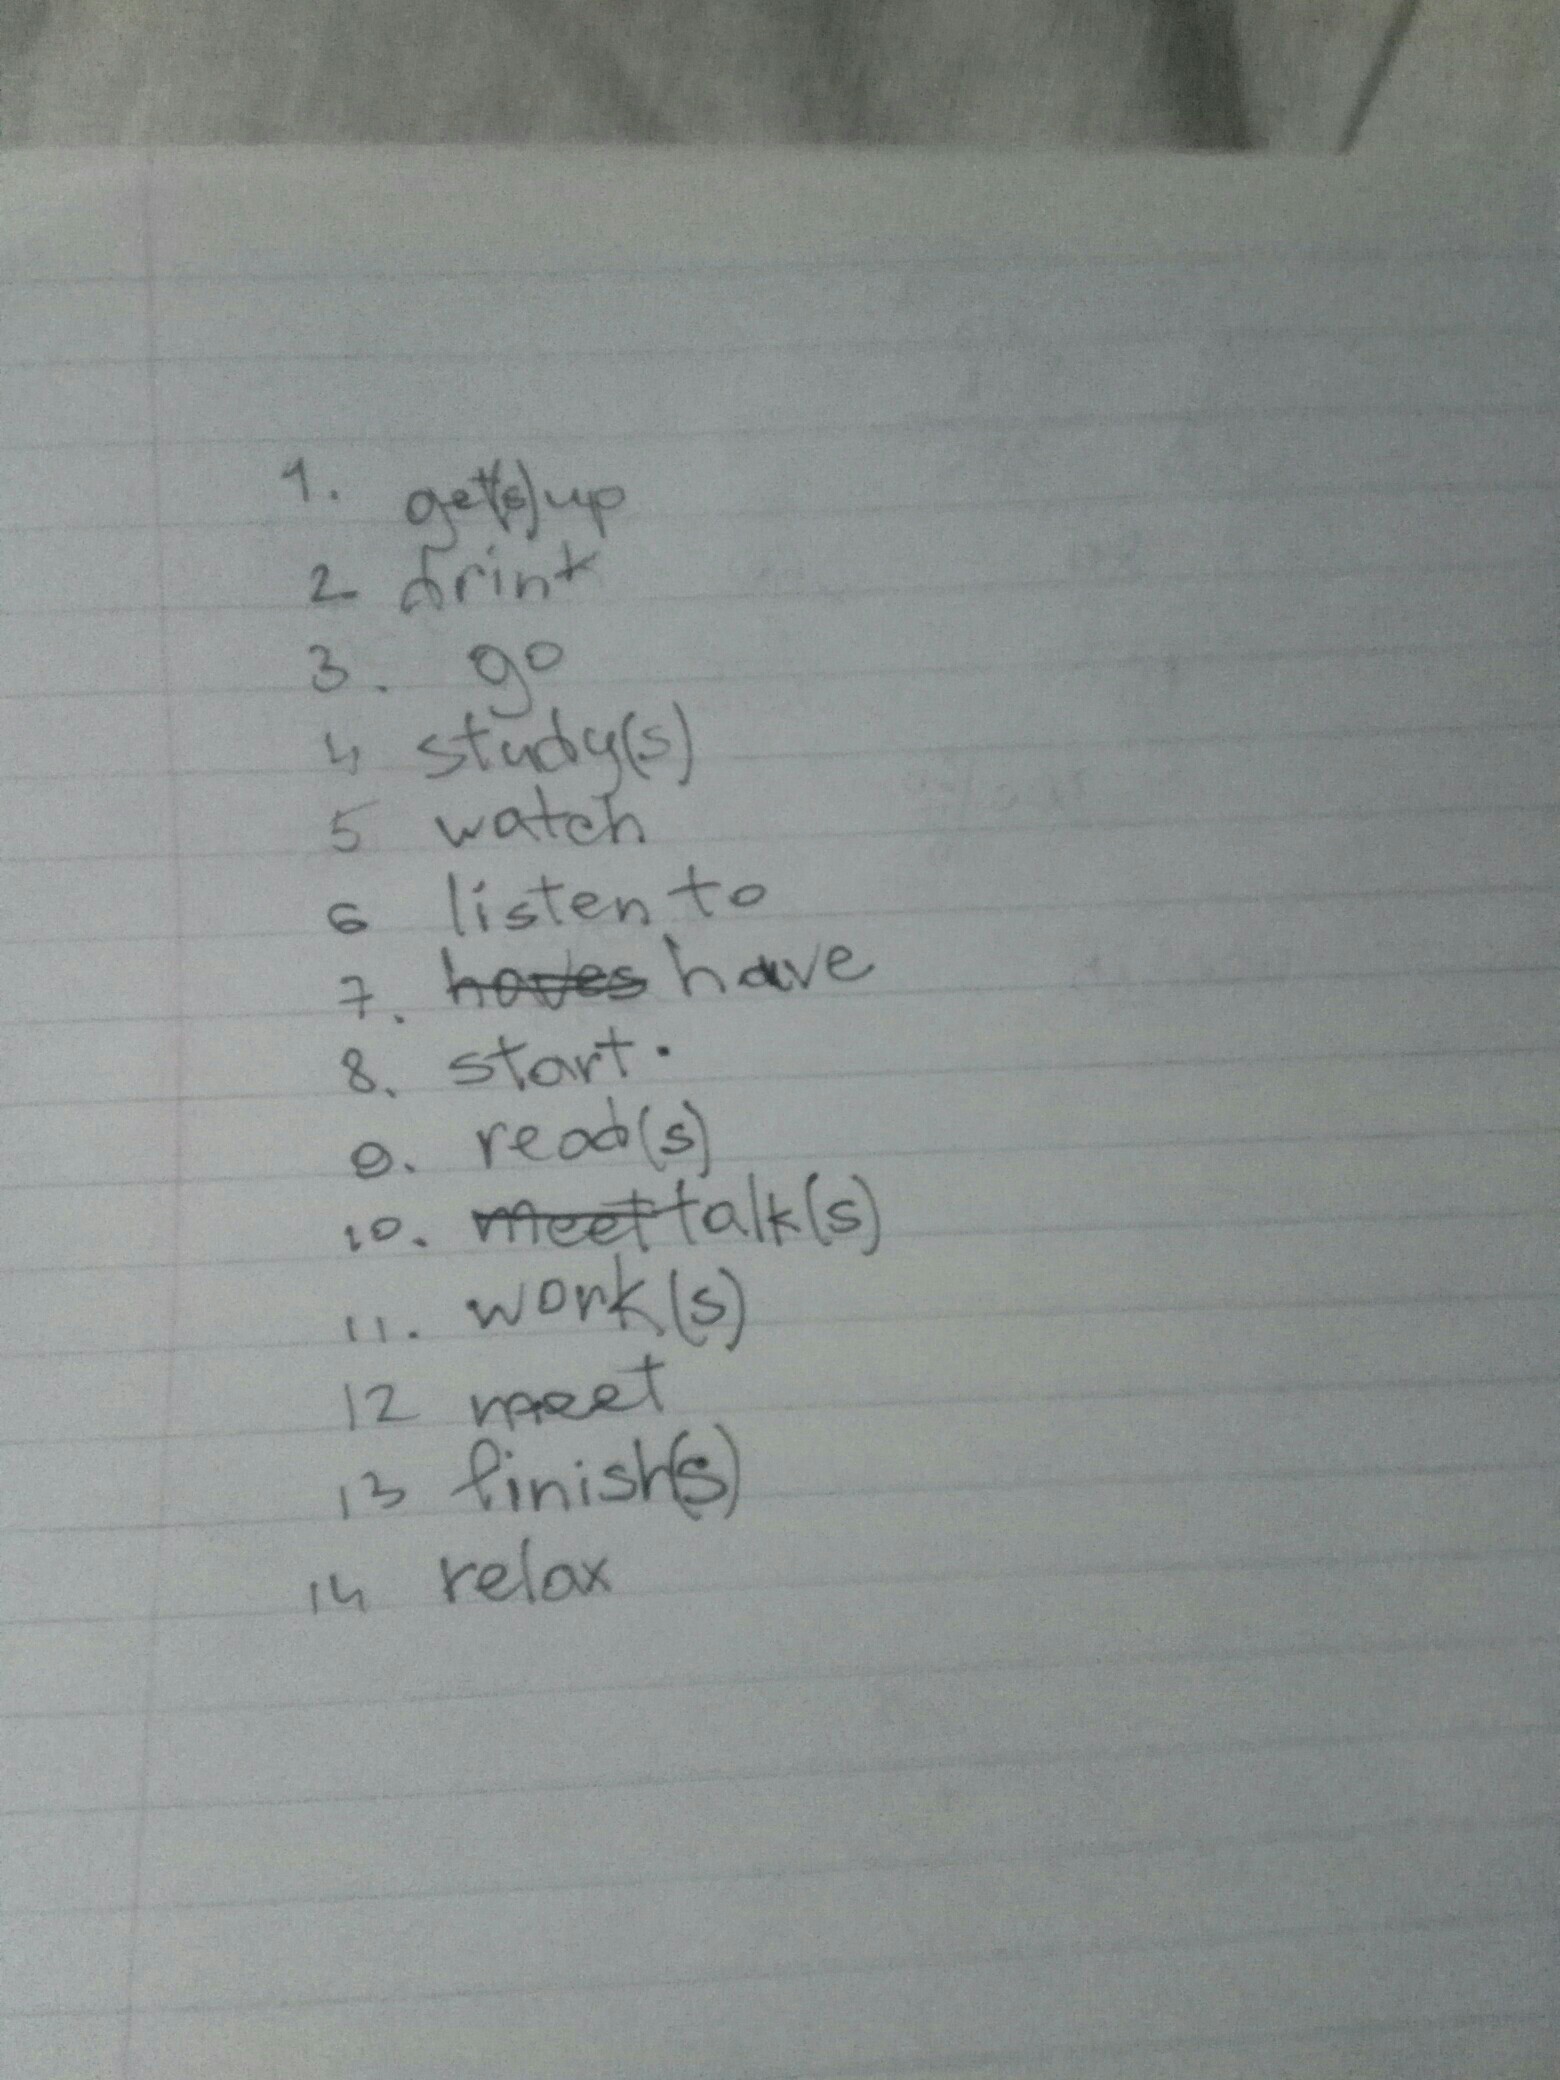 1. get(s) up
2 drink
3. go
4 study(s)
5 watch
6 listen to
7. haves have
8. start.
9. read(s)
10. meet talk(s)
11. work(s)
12 meet
13 finish(s)
14 relax